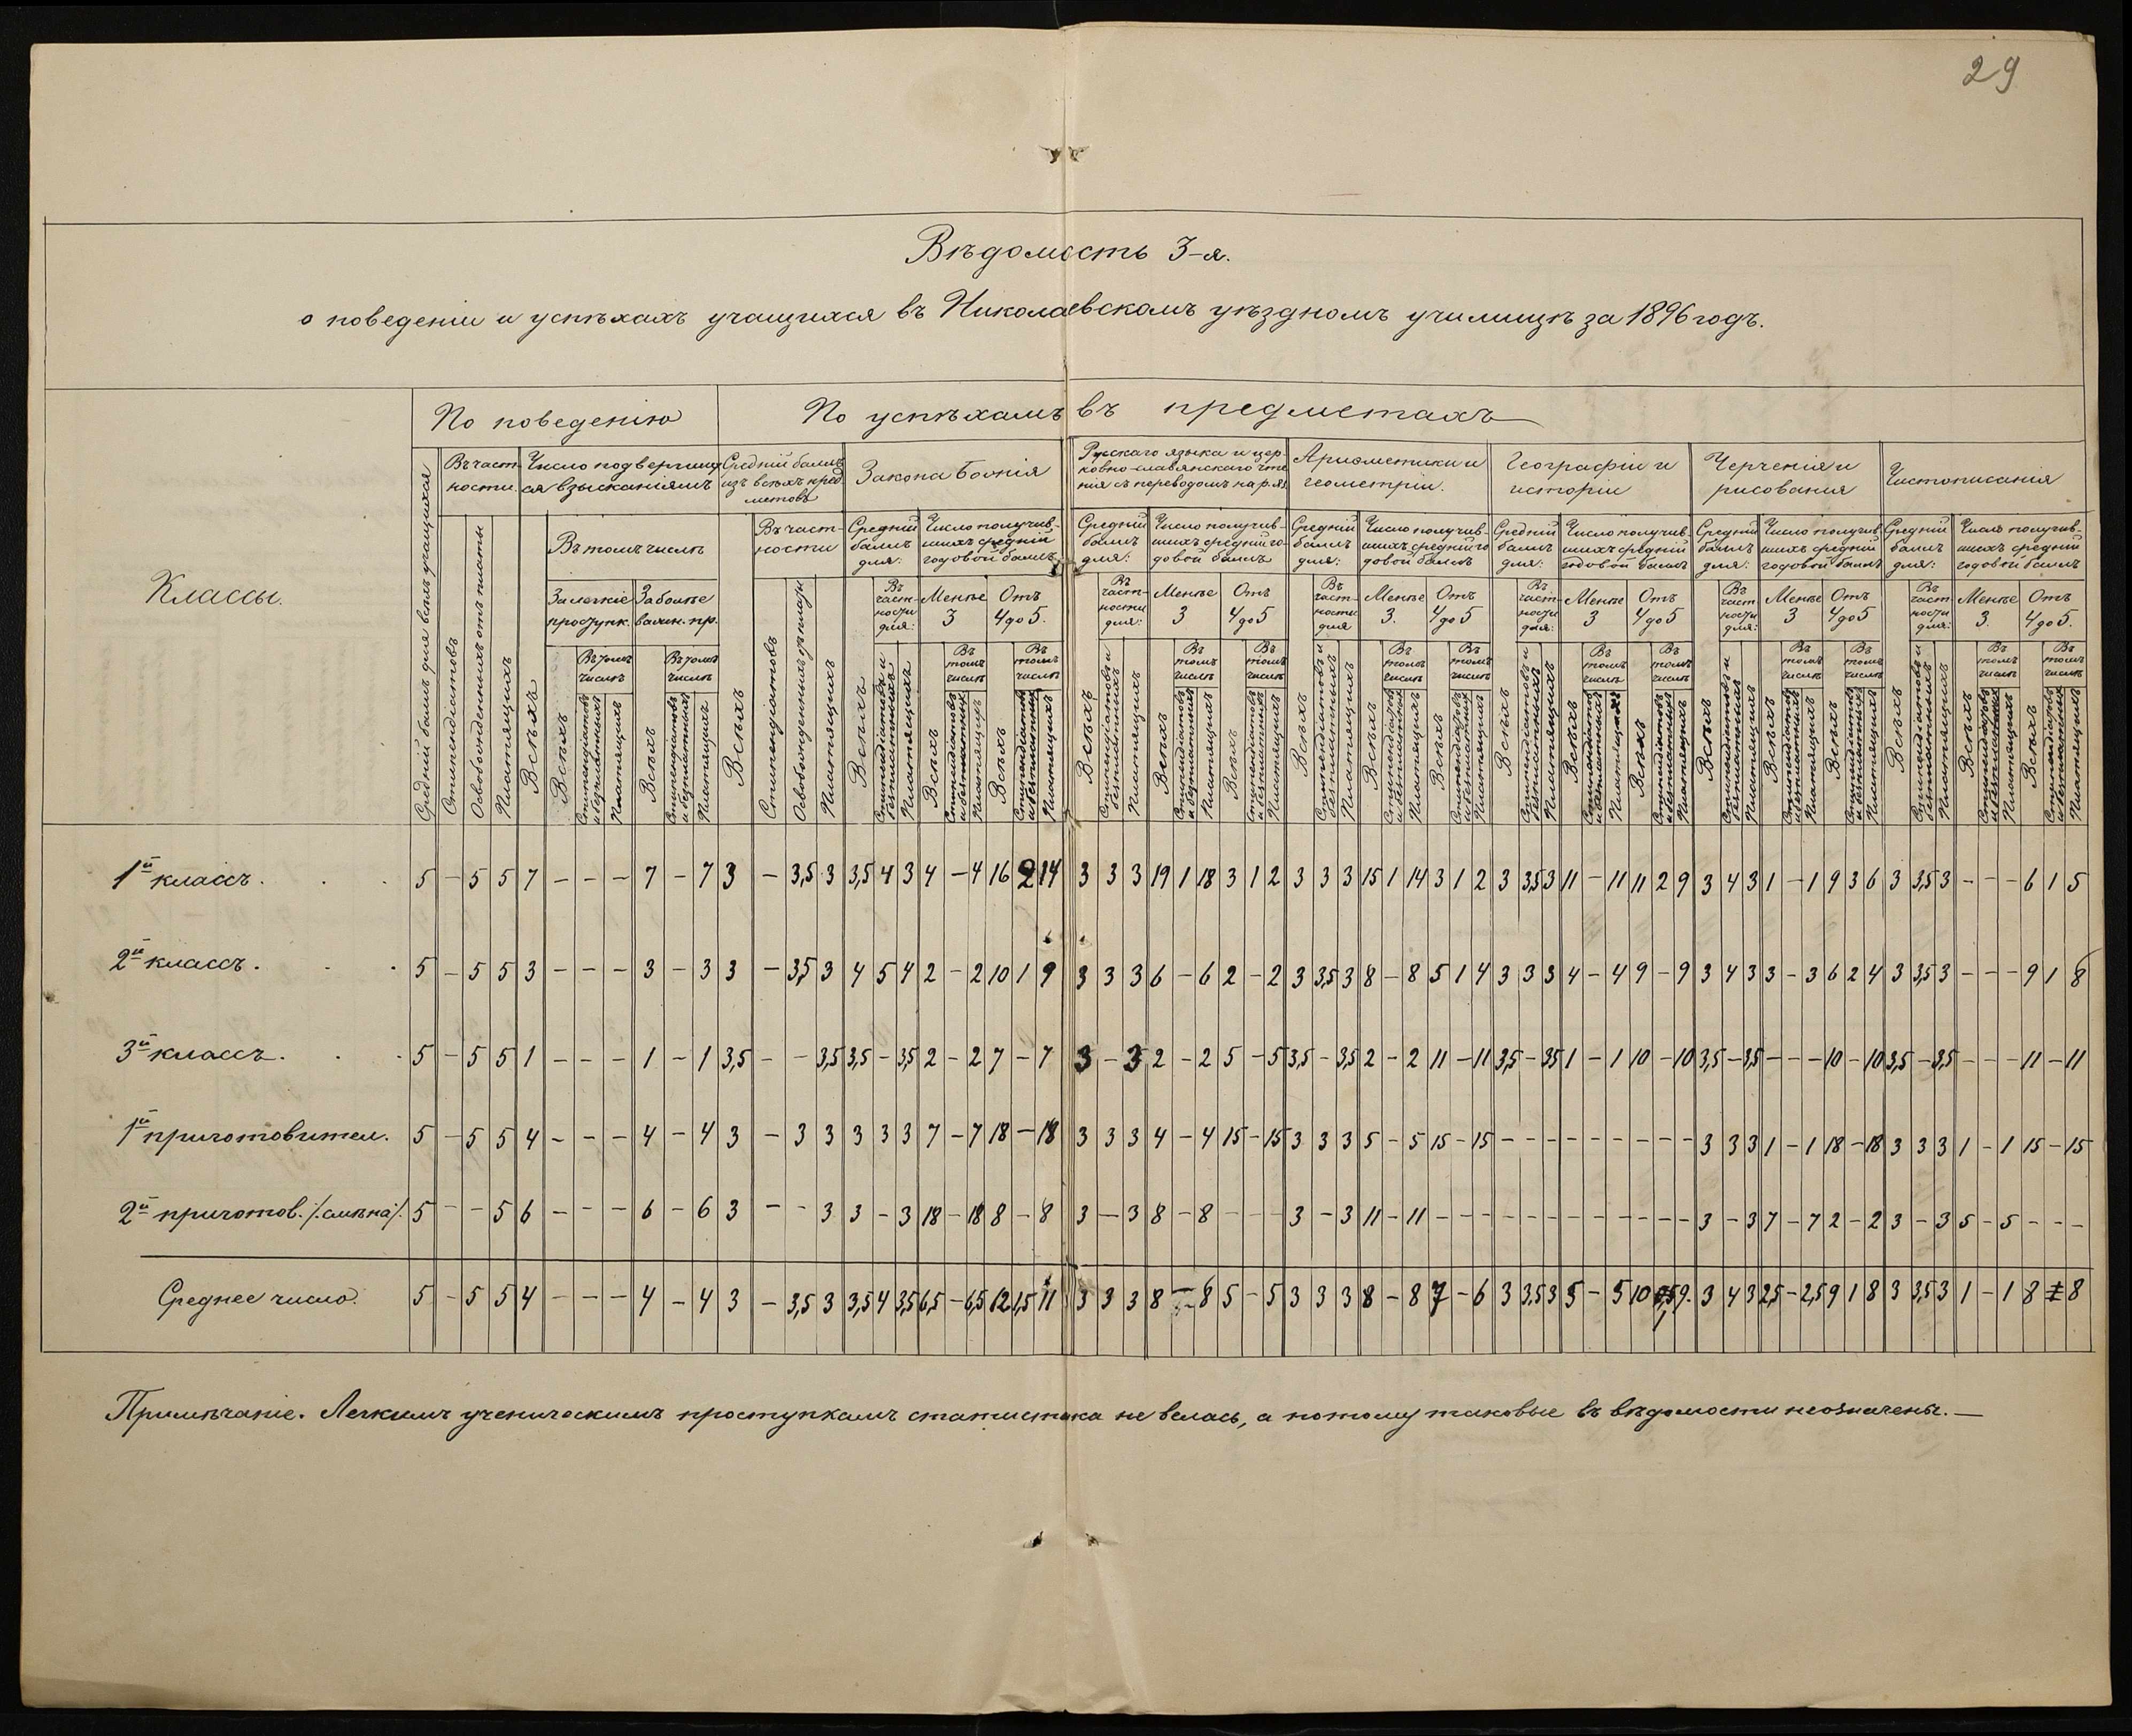 29
Вѣдомость 3-я.
о поведеніи и успѣхахъ учащихся въ Николаевскомъ уѣздномъ училищѣ за 1896 годъ.
Классы.
По поведенію
По успѣхамъ въ предметахъ
Средній баллъ для всѣхъ учащихся
Въ част-
ности.
Число подвергших
ся взысканіямъ
Средній баллъ
изъ всѣхъ пред
метовъ
Закона Божія
Русскаго языка и цер-
ковно-славянскаго чте
нія съ переводомъ на р. яз.
Ариѳметики и
геометріи.
Географіи и
исторіи
Черченія и
рисованія
Чистописанія
Стипендіатовъ
Освобожденныхъ отъ платы
Платящихъ
Всѣхъ
Въ томъ числѣ
За легкіе
проступк.
За болѣе
важн. пр.
Въ част-
ности
Средній
баллъ
для:
Число получив-
шихъ средній
годовой баллъ
Въ
част-
ности
для:
Менѣе
3
Отъ
4 до 5.
Въ
томъ
числѣ
Всѣхъ
Стипендіатовъ и безплатныхъ
Платящихъ
1й классъ. 5 – 5 5 7 – – – 7 – 7 3 – 3,5 3 3,5 4 3 4 – 4 16 2 14 3 3 3 19 1 18 3 1 2 3 3 3 15 1 14 3 1 2 3 3,5 3 11 – 11 11 2 9 3 4 3 1 – 1 9 3 6 3 3,5 3 – – – 6 1 5
2й классъ. 5 – 5 5 3 – – – 3 – 3 3 – 3,5 3 4 5 4 2 – 2 10 1 9 3 3 3 6 – 6 2 – 2 3 3,5 3 8 – 8 5 1 4 3 3 3 4 – 4 9 – 9 3 4 3 3 – 3 6 2 4 3 3,5 3 – – – 9 1 8
3й классъ. 5 – 5 5 1 – – – 1 – 1 3,5 – – 3,5 3,5 – 3,5 2 – 2 7 – 7 3 – 3 2 – 2 5 – 5 3,5 – 3,5 2 – 2 11 – 11 3,5 – 3,5 1 – 1 10 – 10 3,5 – 3,5 – – – 10 – 10 3,5 – 3,5 – – – 11 – 11
1й приготовител. 5 – 5 5 4 – – – 4 – 4 3 – 3 3 3 3 3 7 – 7 18 – 18 3 3 3 4 – 4 15 – 15 3 3 3 5 – 5 15 – 15 – – – – – – – – – 3 3 3 1 – 1 18 – 18 3 3 3 1 – 1 15 – 15
2й приготов. /.смѣна./ 5 – – 5 6 – – – 6 – 6 3 – – 3 3 – 3 18 – 18 8 – 8 3 – 3 8 – 8 – – – 3 – 3 11 – 11 – – – – – – – – – – – – 3 – 3 7 – 7 2 – 2 3 – 3 5 – 5 – – –
Среднее число. 5 – 5 5 4 – – – 4 – 4 3 – 3,5 3 3,5 4 3,5 6,5 – 6,5 12 1,5 11 3 3 3 8 – 8 5 – 5 3 3 3 8 – 8 7 – 6 3 3,5 3 5 – 5 10 9. 3 4 3 2,5 – 2,5 9 1 8 3 3,5 3 1 – 1 8 8
Примѣчаніе. Легкимъ ученическимъ проступкамъ статистика не велась, а потому таковые въ вѣдомости не означены. —